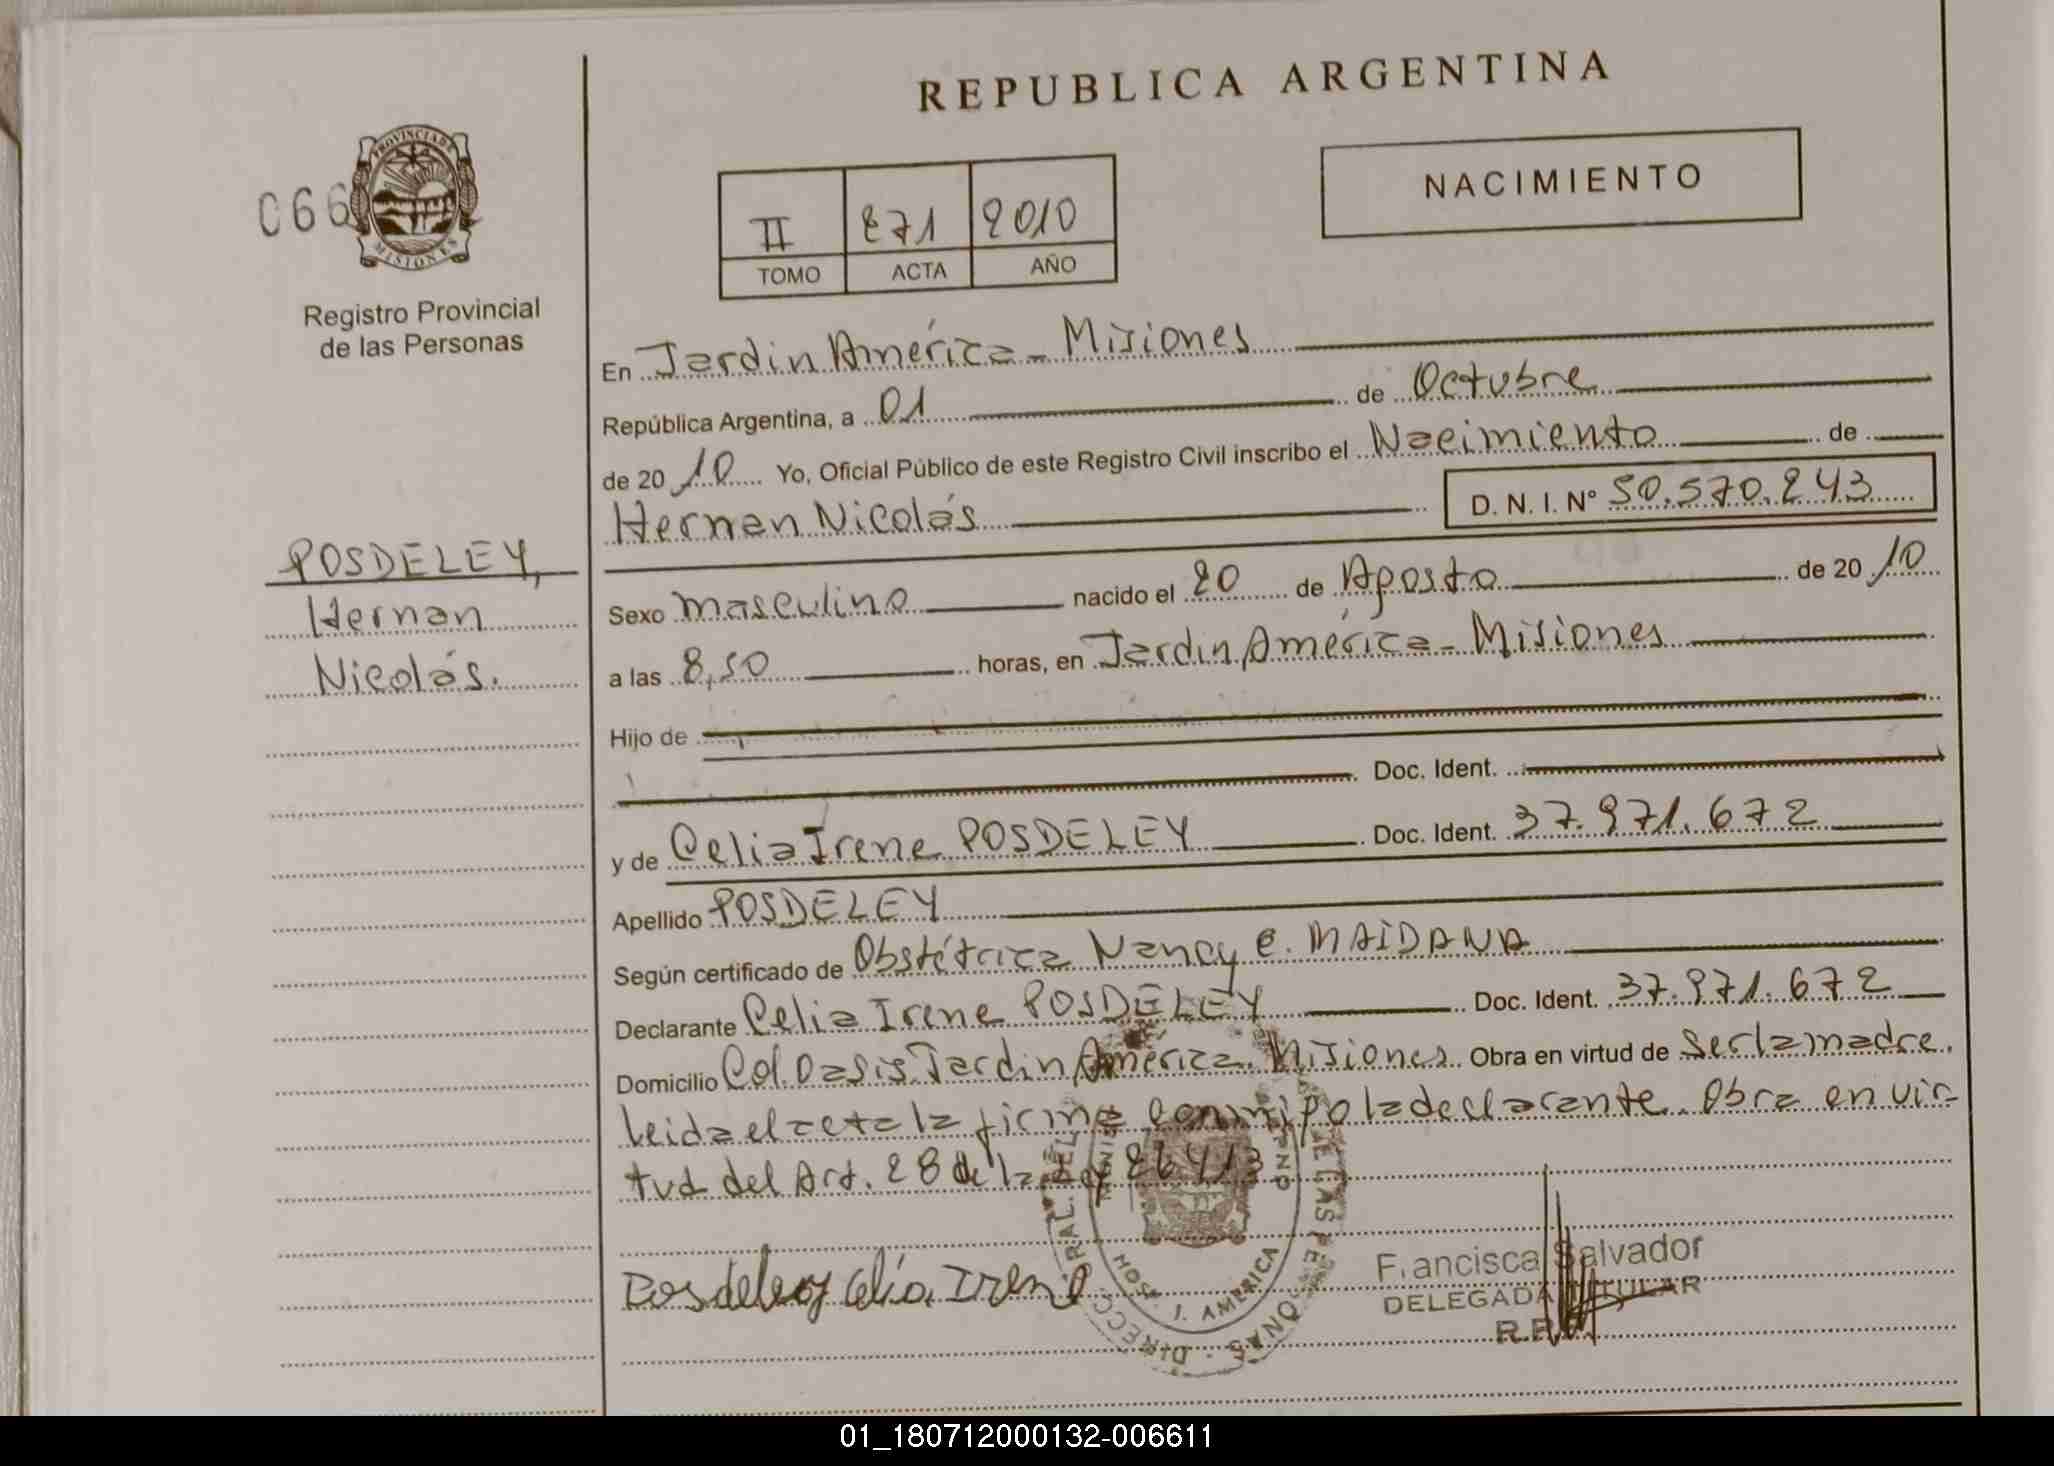 REPUBLICA ARGENTINA
NACIMIENTO
PROVINCIA DE
MISIONES
066
II 271 2010
TOMO ACTA AÑO
Registro Provincial
de las Personas
En Jardin América - Misiones
República Argentina, a 01 de Octubre
de 20 10 Yo, Oficial Público de este Registro Civil inscribo el Nacimiento de
Hernan Nicolás D. N. I. N° 50.570.243
POSDELEY,
Hernan
Nicolás.
Sexo masculino nacido el 20 de Agosto de 20 10
a las 8,50 horas, en Jardin América - Misiones
Hijo de
Doc. Ident.
y de Celia Irene POSDELEY Doc. Ident. 37.971.672
Apellido POSDELEY
Según certificado de Obstétrica Nancy E. MAIDANA
Declarante Celia Irene POSDELEY Doc. Ident. 37.971.672
Domicilio Col. Oasis Jardin América. Misiones Obra en virtud de ser la madre.
Leida el acta la firma conmigo la declarante. Obra en vir-
tud del Art. 28 de la Ley 26413
Posdeley Celia Irene
HOSP. J. AMERICA
Francisca Salvador
DELEGADA TITULAR
01_180712000132-006611